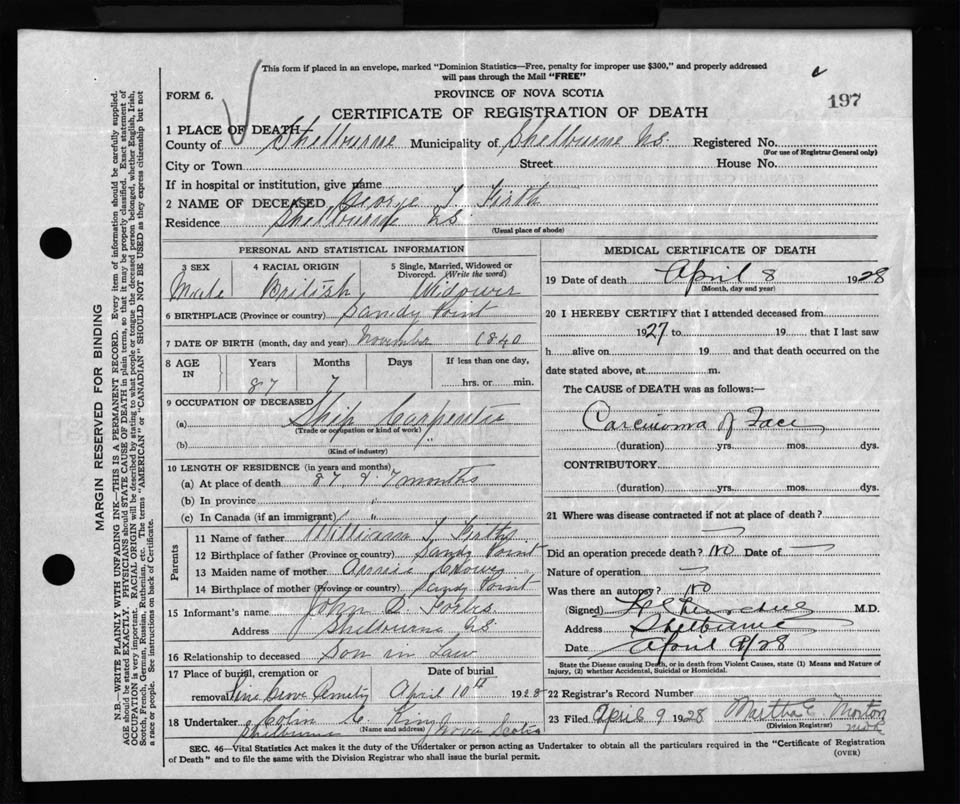 This form if placed in an envelope, marked "Dominion Statistics—Free, penalty for improper use $300," and properly addressed
will pass through the Mail "FREE"
FORM 6.
PROVINCE OF NOVA SCOTIA
197
CERTIFICATE OF REGISTRATION OF DEATH
1 PLACE OF DEATH
County of Shelburne Municipality of Shelburne N.S. Registered No.
(For use of Registrar General only)
City or Town Street House No.
If in hospital or institution, give name
2 NAME OF DECEASED George T. Firth
Residence Shelburne N.S.
(Usual place of abode)
PERSONAL AND STATISTICAL INFORMATION
3 SEX 4 RACIAL ORIGIN 5 Single, Married, Widowed or
Divorced. (Write the word)
Male British Widower
6 BIRTHPLACE (Province or country) Sandy Point
7 DATE OF BIRTH (month, day and year) November 1840
8 AGE IN Years Months Days If less than one day,
87 7 hrs. or min.
9 OCCUPATION OF DECEASED
(a) Ship Carpenter
(Trade or occupation or kind of work)
(b)
(Kind of industry)
10 LENGTH OF RESIDENCE (in years and months)
(a) At place of death 87 & 7 months
(b) In province "
(c) In Canada (if an immigrant) "
Parents
11 Name of father William T. Firth
12 Birthplace of father (Province or country) Sandy Point
13 Maiden name of mother
14 Birthplace of mother (Province or country) Sandy Point
15 Informant's name John D. Forbes
Address Shelburne N.S.
16 Relationship to deceased Son in Law
17 Place of burial, cremation or Date of burial
removal Pine Grove Cemetry April 10th 1928
18 Undertaker Colin C. King
(Name and address)
Shelburne Nova Scotia
MEDICAL CERTIFICATE OF DEATH
19 Date of death April 8 1928
(Month, day and year)
20 I HEREBY CERTIFY that I attended deceased from
1927 to 19 that I last saw
h alive on 19 and that death occurred on the
date stated above, at m.
The CAUSE of DEATH was as follows:—
Carcinoma of Face
(duration) yrs. mos. dys.
CONTRIBUTORY
(duration) yrs. mos. dys.
21 Where was disease contracted if not at place of death?
Did an operation precede death? No Date of —
Nature of operation —
Was there an autopsy? No
(Signed) M.D.
Address Shelburne
Date April 9/28
State the Disease causing Death, or in death from Violent Causes, state (1) Means and Nature of
Injury, (2) whether Accidental, Suicidal or Homicidal.
22 Registrar's Record Number
23 Filed April 9 1928 Martha E Morton
(Division Registrar)
SEC. 46—Vital Statistics Act makes it the duty of the Undertaker or person acting as Undertaker to obtain all the particulars required in the "Certificate of Registration
of Death" and to file the same with the Division Registrar who shall issue the burial permit.
(OVER)
MARGIN RESERVED FOR BINDING
N.B.—WRITE PLAINLY WITH UNFADING INK—THIS IS A PERMANENT RECORD. Every item of information should be carefully supplied.
AGE should be stated EXACTLY. PHYSICIANS should STATE CAUSE OF DEATH in plain terms, so that it may be properly classified. Exact statement of
OCCUPATION is very important. RACIAL ORIGIN will be described by stating to what people or tongue the deceased person belonged, whether English, Irish,
Scotch, French, German, Russian, Ruthenian, etc. The terms "AMERICAN" or "CANADIAN" SHOULD NOT BE USED as they express citizenship but not
a race or people. See instructions on back of Certificate.